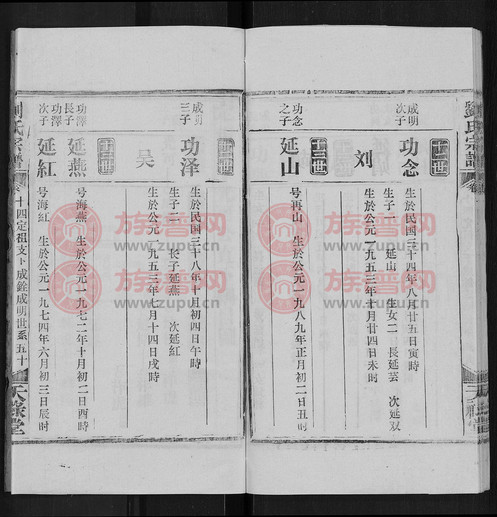 劉氏宗譜
十二世
成明
次子
功念
生於民國三十四年八月廿五日寅時
生子一 延山 生女二 長延芸 次延双
刘
生於公元一九五三年十月廿四日未时
十三世
功念
之子
延山
号再山 生於公元一九八九年正月初二日丑时
十二世
成明
三子
功泽
生於民國三十八年十月初四日午時
生子二 长子延燕 次延紅
吴
生於公元一九五三年七月十四日戌時
十三世
功澤
長子
延燕
号海燕 生於公元一九七二年十月初二日酉時
功澤
次子
延紅
号海紅 生於公元一九七四年六月初三日辰时
十四定祖支卜成銓成明世系五十
天祿堂
族譜网
www.zupu.cn
族譜网
www.zupu.cn